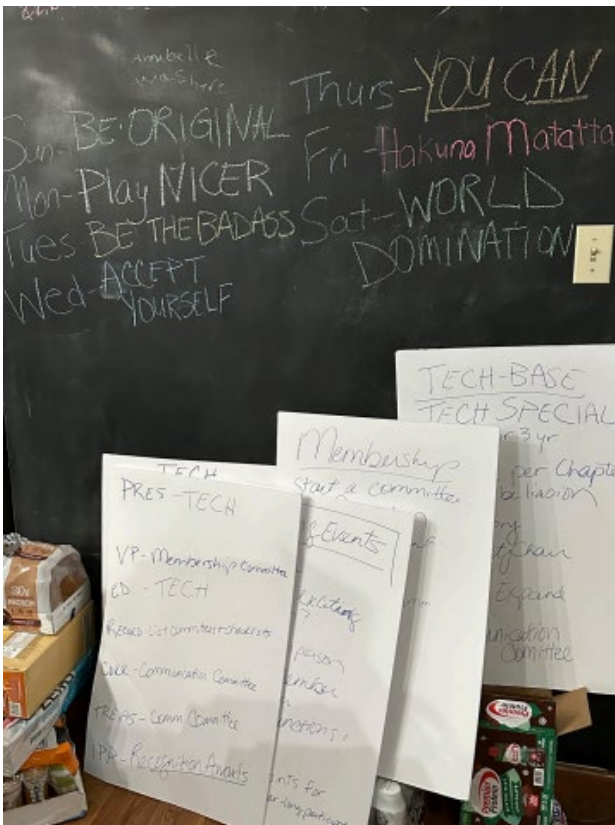 Annabelle
was here
Sun-BE·ORIGINAL
Mon-Play NICER
Tues-BE THE BADASS
Wed-ACCEPT
YOURSELF
Thurs-YOU CAN
Fri-Hakuna Matatta
Sat-WORLD
DOMINATION
TECH
PRES-TECH
VP-Membership Committee
CD-TECH
RECORD-List committees+checklists
CORR-Communication Committee
TREAS-Comm Committee
IPP-Recognition Awards
Events
person
ember
nts for
Membership
Start a committee
TECH-BASE
TECH SPECIAL
r 3 yr
per Chapte
be liasion
ory
Chair
Expand
unication
Comittee
30g
Premier
Protein
Premier
Protein